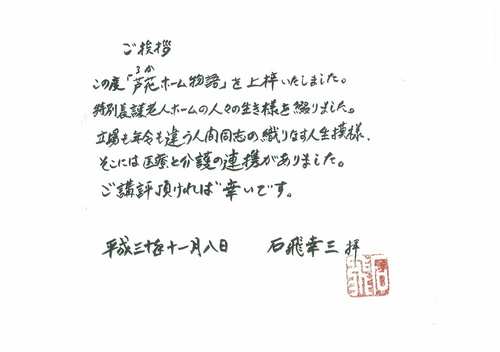 ご挨拶
ろか
この度「芦花ホーム物語」を上梓いたしました。
特別養護老人ホームの人々の生き様を綴りました。
立場も年令も違う人間同志の織りなす人生模様、
そこには医療と介護の連携がありました。
ご講評頂ければ幸いです。
平成三十年十一月八日 石飛幸三 拝